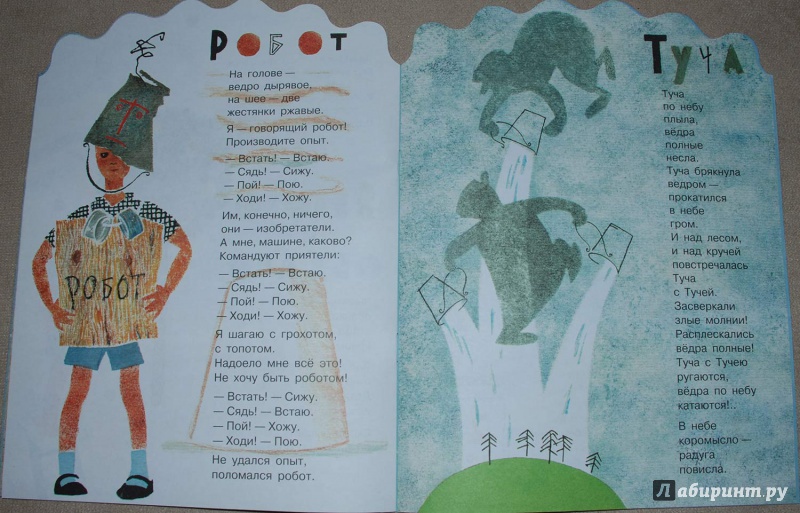 РОБОТ
На голове —
ведро дырявое,
на шее — две
жестянки ржавые.
Я — говорящий робот!
Производите опыт.
— Встать! — Встаю.
— Сядь! — Сижу.
— Пой! — Пою.
— Ходи! — Хожу.
Им, конечно, ничего,
они — изобретатели.
А мне, машине, каково?
Командуют приятели:
— Встать! — Встаю.
— Сядь! — Сижу.
— Пой! — Пою.
— Ходи! — Хожу.
Я шагаю с грохотом,
с топотом.
Надоело мне всё это!
Не хочу быть роботом!
— Встать! — Сижу.
— Сядь! — Встаю.
— Пой! — Хожу.
— Ходи! — Пою.
Не удался опыт,
поломался робот.
РОБОТ
ТУЧА
Туча
по небу
плыла,
вёдра
полные
несла.
Туча брякнула
ведром —
прокатился
в небе
гром.
И над лесом,
и над кручей
повстречалась
Туча
с Тучей.
Засверкали
злые молнии!
Расплескались
вёдра полные!
Туча с Тучею
ругаются,
вёдра по небу
катаются!..
В небе
коромысло —
радуга
повисла.
Лабиринт.ру